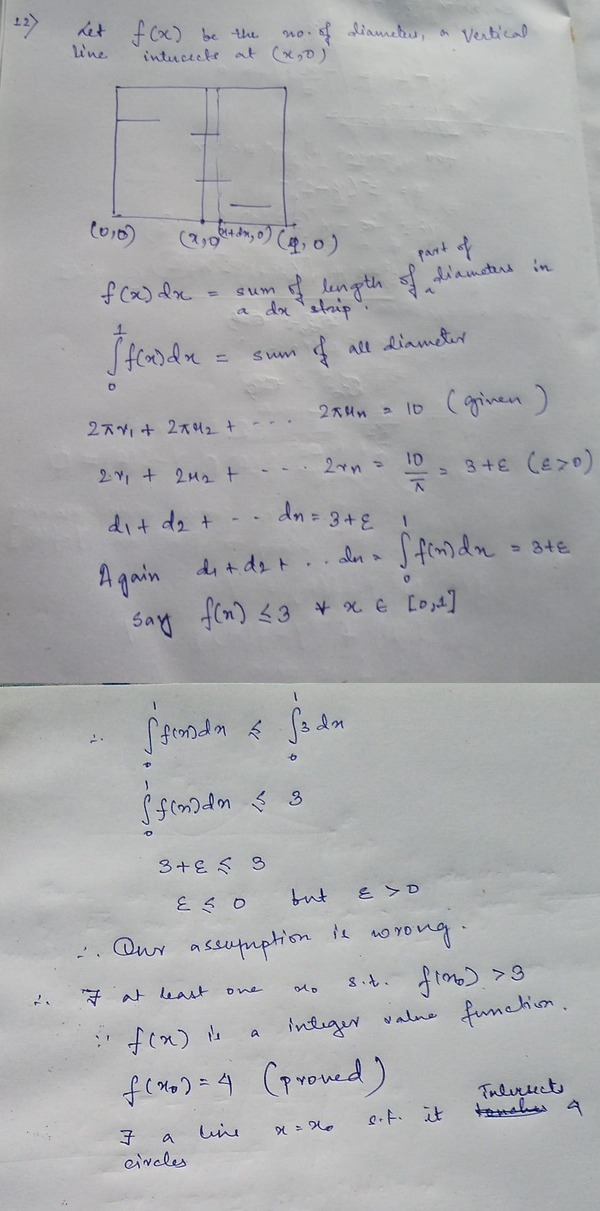 12) Let f(x) be the no. of diameter, a vertical
line intersects at (x,0)
(0,0) (x,0) (x+dx,0) (1,0)
f(x)dx = sum of length of part of a diameters in
a dx strip.
∫₀¹ f(x)dx = sum of all diameter
2πr₁ + 2πr₂ + ... 2πrₙ = 10 (given)
2r₁ + 2r₂ + - - - 2rₙ = 10/π = 3+ε (ε>0)
d₁ + d₂ + - - dₙ = 3+ε
Again d₁+d₂+ .. dₙ = ∫₀¹ f(x)dx = 3+ε
say f(x) ≤ 3 ∀ x ∈ [0,1]
∴ ∫₀¹ f(x)dx ≤ ∫₀¹ 3 dx
∫₀¹ f(x)dx ≤ 3
3+ε ≤ 3
ε ≤ 0 but ε > 0
∴ Our assumption is wrong.
∴ ∃ at least one x₀ s.t. f(x₀) > 3
∵ f(x) is a integer value function.
f(x₀) = 4 (proved)
∃ a line x = x₀ s.t. it touches Intersects 4
circles